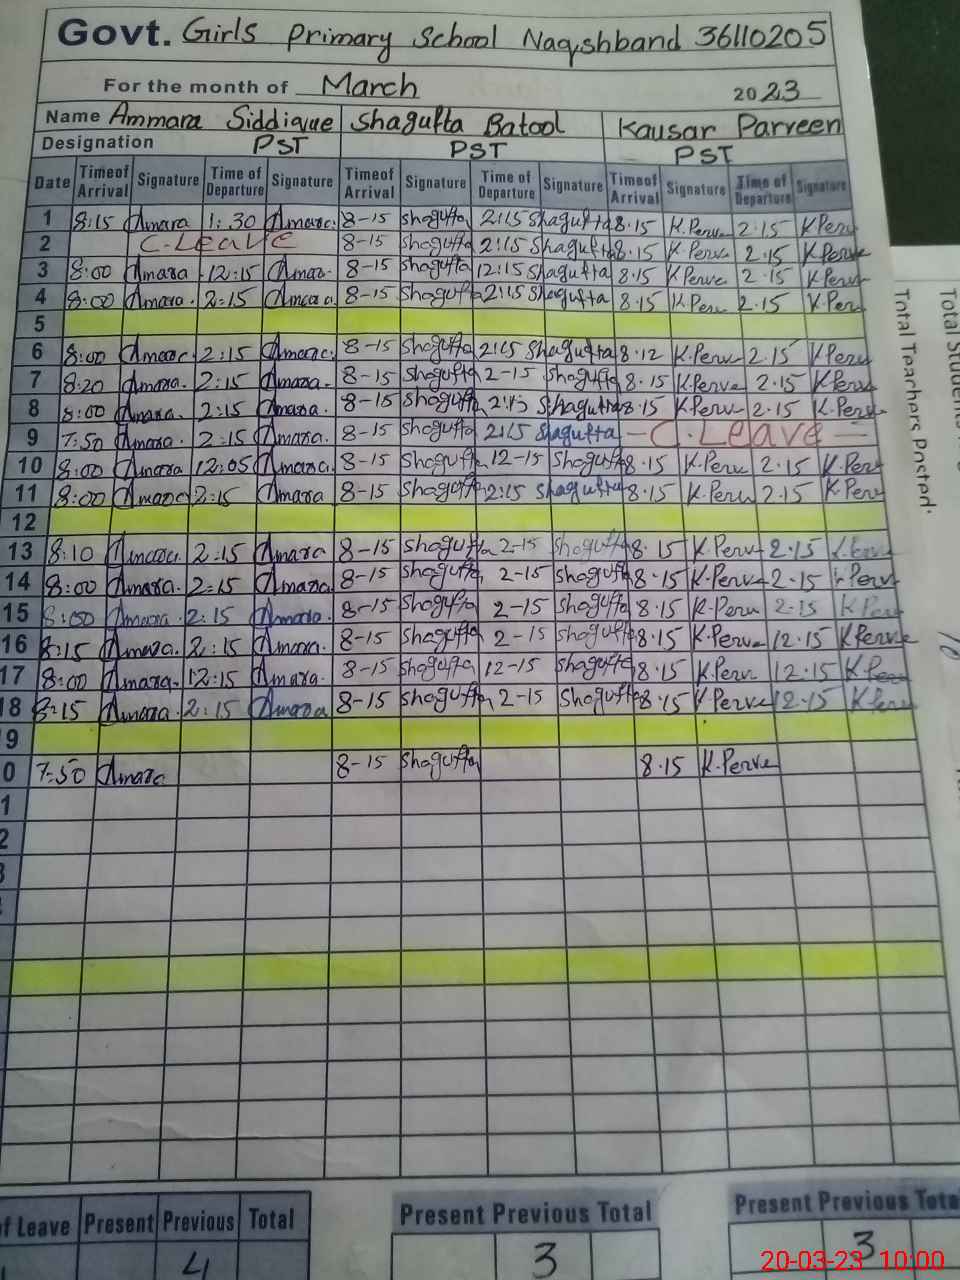 Govt. Girls Primary School Naqshband 36110205
For the month of March 2023
Name Ammara Siddique Shagufta Batool Kausar Parveen
Designation PST PST PST
Date Time of Arrival Signature Time of Departure Signature Time of Arrival Signature Time of Departure Signature Time of Arrival Signature Time of Departure Signature
1 8:15 Amara 1:30 Amara 8-15 Shagufta 2:15 Shagufta 8.15 K.Perv 2.15 K.Perv
2 C.Leave 8-15 Shagufta 2:15 Shagufta 8.15 K.Perv 2.15 K.Perve
3 8:00 Amara 12:15 Amar 8-15 Shagufta 12:15 Shagufta 8.15 K.Perve 2.15 K.Perv
4 8:00 Amara. 2:15 Amara. 8-15 Shagufta 2:15 Shagufta 8.15 K.Perv 2.15 K.Perv
5
6 8:00 Amara 2:15 Amara. 8-15 Shagufta 2:15 Shagufta 8.12 K.Perv 2.15 K.Perv
7 8:20 Amara. 2:15 Amara. 8-15 Shagufta 2-15 Shagufta 8.15 K.Perve 2.15 K.Perv
8 8:00 Amara. 2:15 Amara. 8-15 Shagufta 2:15 Shagufta 8.15 K.Perv 2.15 K.Perv
9 7:50 Amara. 2:15 Amara. 8-15 Shagufta 2:15 Shagufta - C.Leave -
10 8:00 Amara 12:05 Amara. 8-15 Shagufta 12-15 Shagufta 8.15 K.Perv 2.15 K.Perv
11 8:00 Amara 2:15 Amara 8-15 Shagufta 2:15 Shagufta 8.15 K.Perv 2.15 K.Perv
12
13 8:10 Amara. 2:15 Amara 8-15 Shagufta 2-15 Shagufta 8.15 K.Perv 2.15 K.Perv
14 8:00 Amara. 2:15 Amara. 8-15 Shagufta 2-15 Shagufta 8.15 K.Perv 2.15 K.Perv
15 8:00 Amara. 2:15 Amara. 8-15 Shagufta 2-15 Shagufta 8.15 K.Perv 2.15 K.Perv
16 8:15 Amara. 2:15 Amara. 8-15 Shagufta 2-15 Shagufta 8.15 K.Perve 12.15 K Perve
17 8:00 Amara. 12:15 Amara. 8-15 Shagufta 12-15 Shagufta 8.15 K.Perv 12.15 K.Perv
18 8:15 Amara 2:15 Amara 8-15 Shagufta 2-15 Shagufta 8.15 K.Perve 12.15 K.Perv
9
0 7:50 Amara 8-15 Shagufta 8.15 K.Perve
1
2
3
of Leave Present Previous Total Present Previous Total Present Previous Total
4 3 3
Total Teachers Posted.
20-03-23 10:00